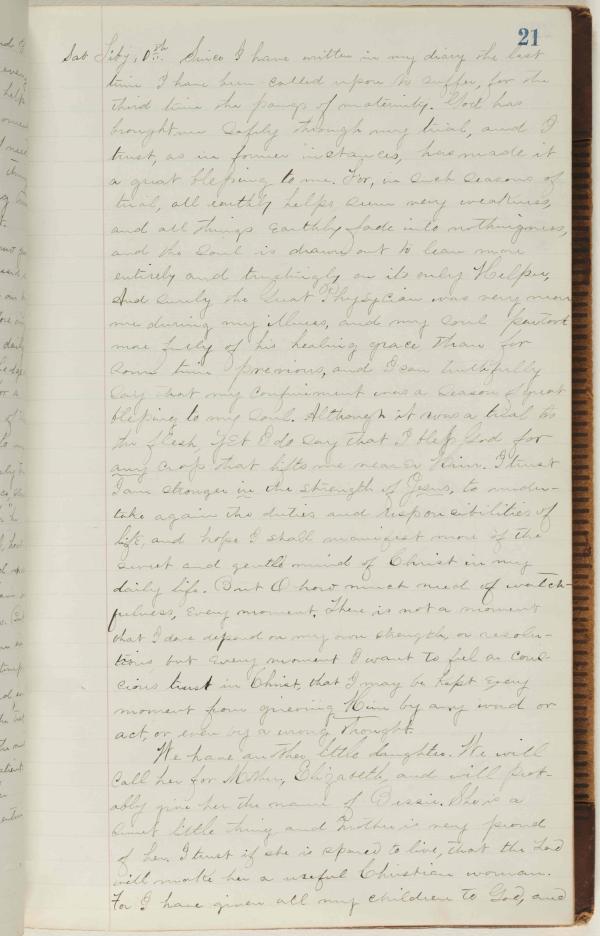 21
Sat Feby, 10th. Since I have written in my diary the last
time I have been called upon to suffer, for the
third time the pangs of maternity. God has
brought me safely through my trial, and I
trust, as in former instances, has made it
a great blessing to me. For, in such seasons of
trial, all earthly helps seem very weakness,
and all things earthly fade into nothingness,
and the soul is drawn out to lean more
entirely and trustingly on its only Helper,
And surely the Great Physycian was very near
me during my illness, and my soul partook
more freely of his healing grace than for
some time previous, and I can truthfully
say that my confinement was a season of great
blessing to my soul. Although it was a trial to
the flesh, yet I do say that I bless God for
any cross that lifts me nearer Him. I trust
I am stronger in the strength of Jesus, to under-
take again the duties and responsibilities of
life, and hope I shall manifest more of the
sweet and gentle mind of Christ in my
daily life. But O how much need of watch-
fulness, every moment. There is not a moment
that I dare depend on my own strength, or resolu-
tions but every moment I want to feel a cons-
cious trust in Christ, that I may be kept every
moment from grieving Him by any word or
act, or even by a wrong thought.
We have another little daughter. We will
call her for Mother, Elizabeth, and will prob-
ably give her the name of Bessie. She is a
sweet little thing and Mother is very proud
of her. I trust if she is spared to live, that the Lord
will make her a useful Christian woman.
For I have given all my children to God, and